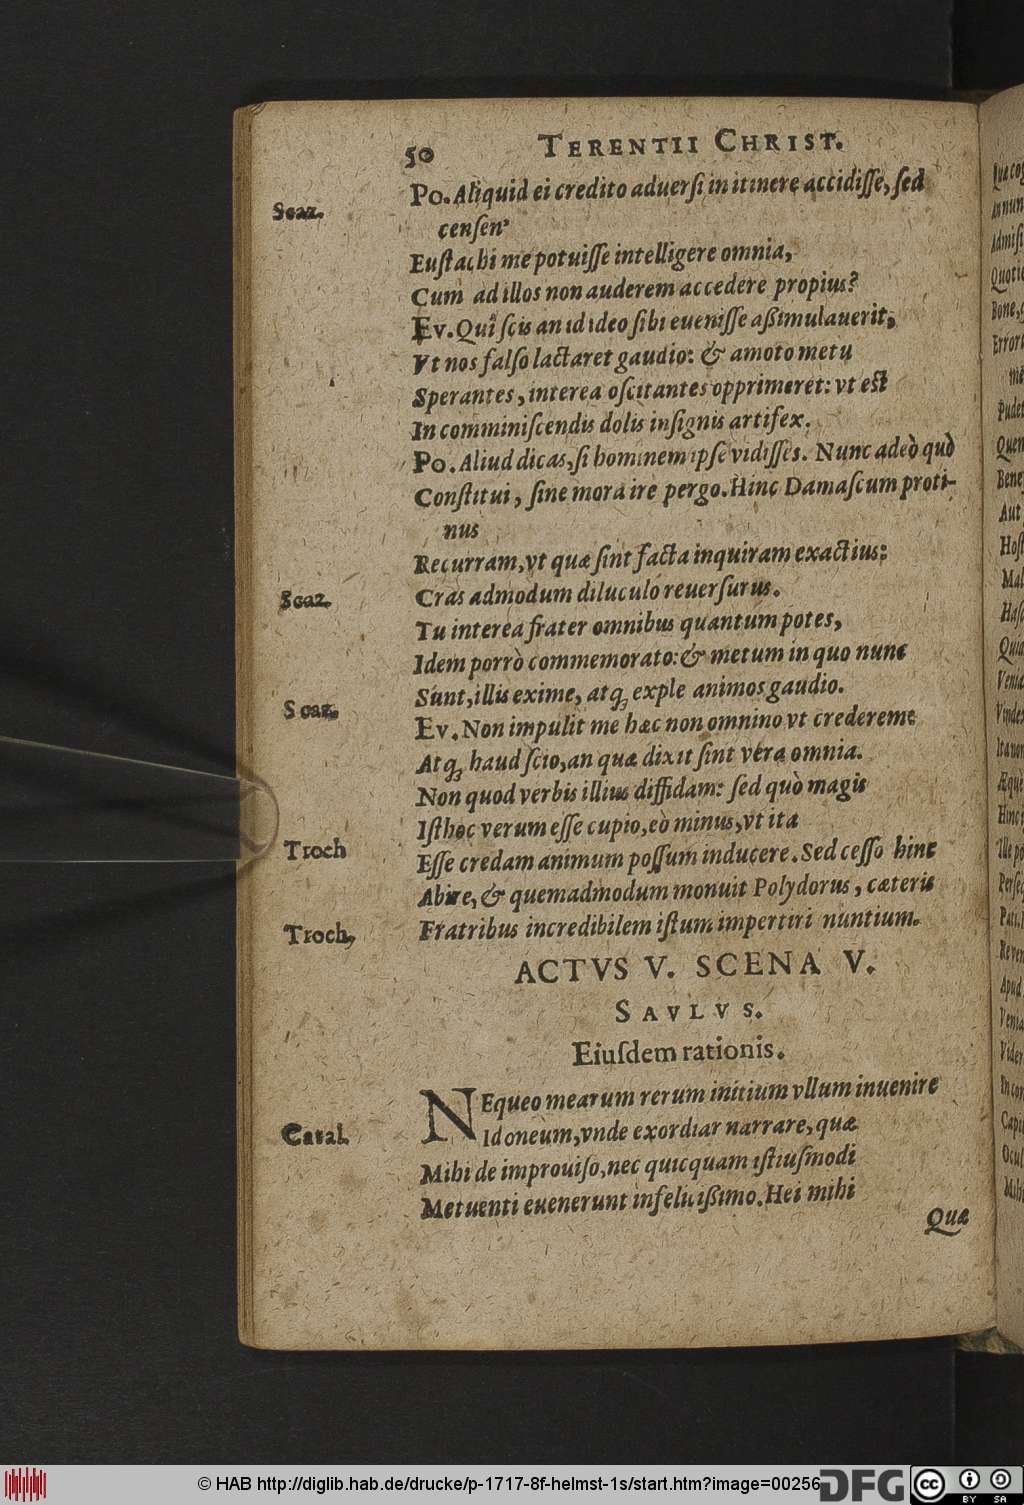 50 TERENTII CHRIST.
Scaz. Po. Aliquid ei credito aduersi in itinere accidisse, sed
censen'
Eustachi me potuisse intelligere omnia,
Cum ad illos non auderem accedere propius?
Ev. Quî scis an id ideo sibi euenisse aßimulauerit,
Vt nos falso lactaret gaudio: & amoto metu
Sperantes, interea oscitantes opprimeret: vt est
In comminiscendis dolis insignis artifex.
Po. Aliud dicas, si hominem ipse vidisses. Nunc adeò quò
Constitui, sine mora ire pergo. Hinc Damascum proti-
nus
Recurram, vt quæ sint facta inquiram exactius:
Scaz. Cras admodum diluculó reuersurus.
Tu interea frater omnibus quantum potes,
Idem porrò commemorato: & metum in quo nunc
Scaz. Sunt, illis exime, atq; exple animos gaudio.
Ev. Non impulit me hæc non omnino vt crederem:
Atq; haud scio, an quæ dixit sint vera omnia.
Non quod verbis illius diffidam: sed quò magis
Isthoc verum esse cupio, eò minus, vt ita
Troch Esse credam animum possum inducere. Sed cesso hinc
Abire, & quemadmodum monuit Polydorus, cæteris
Troch, Fratribus incredibilem istum impertiri nuntium.
ACTVS V. SCENA V.
SAVLVS.
Eiusdem rationis.
NEqueo mearum rerum initium vllum inuenire
Catal. Idoneum, vnde exordiar narrare, quæ
Mihi de improuiso, nec quicquam istiusmodi
Metuenti euenerunt infelicißimo. Hei mihi
Quæ
© HAB http://diglib.hab.de/drucke/p-1717-8f-helmst-1s/start.htm?image=00256
DFG
cc BY SA